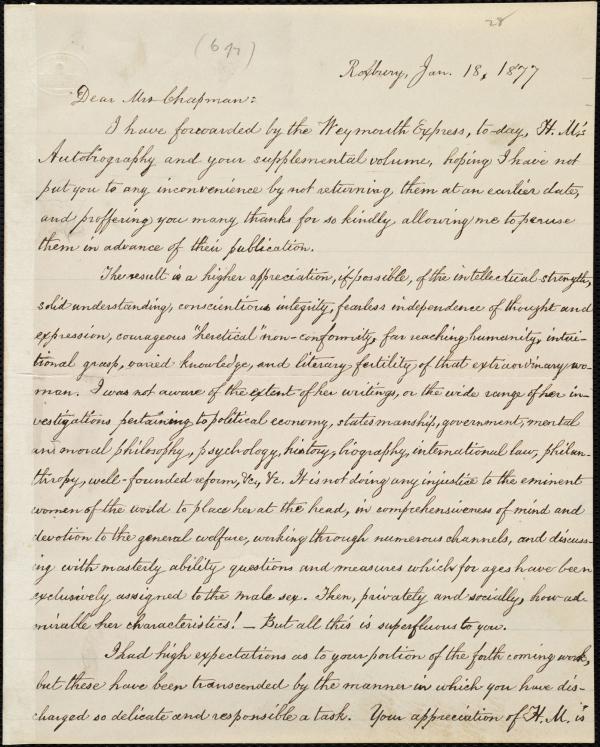 28
(6 p.)
Roxbury, Jan. 18, 1877
Dear Mrs Chapman:
I have forwarded by the Weymouth Express, to-day, H. M.'s
Autobiography and your supplemental volume, hoping I have not
put you to any inconvenience by not returning them at an earlier date,
and proffering you many thanks for so kindly allowing me to peruse
them in advance of their publication.
The result is a higher appreciation, if possible, of the intellectual strength,
solid understanding, conscientious integrity, fearless independence of thought and
expression, courageous "heretical" non-conformity, far reaching humanity, intui-
tional grasp, varied knowledge, and literary fertility of that extraordinary wo-
man. I was not aware of the extent of her writings, or the wide range of her in-
vestigations pertaining to political economy, statesmanship, government, mental
and moral philosophy, psychology, history, biography, international law, philan-
thropy, well-founded reform, &c., &c. It is not doing any injustice to the eminent
women of the world to place her at the head, in comprehensiveness of mind and
devotion to the general welfare, working through numerous channels, and discuss-
ing with masterly ability questions and measures which for ages have been
exclusively assigned to the male sex. Then, privately and socially, how ad-
mirable her characteristics! — But all this is superfluous to you.
I had high expectations as to your portion of the forth coming work,
but these have been transcended by the manner in which you have dis-
charged so delicate and responsible a task. Your appreciation of H. M. is